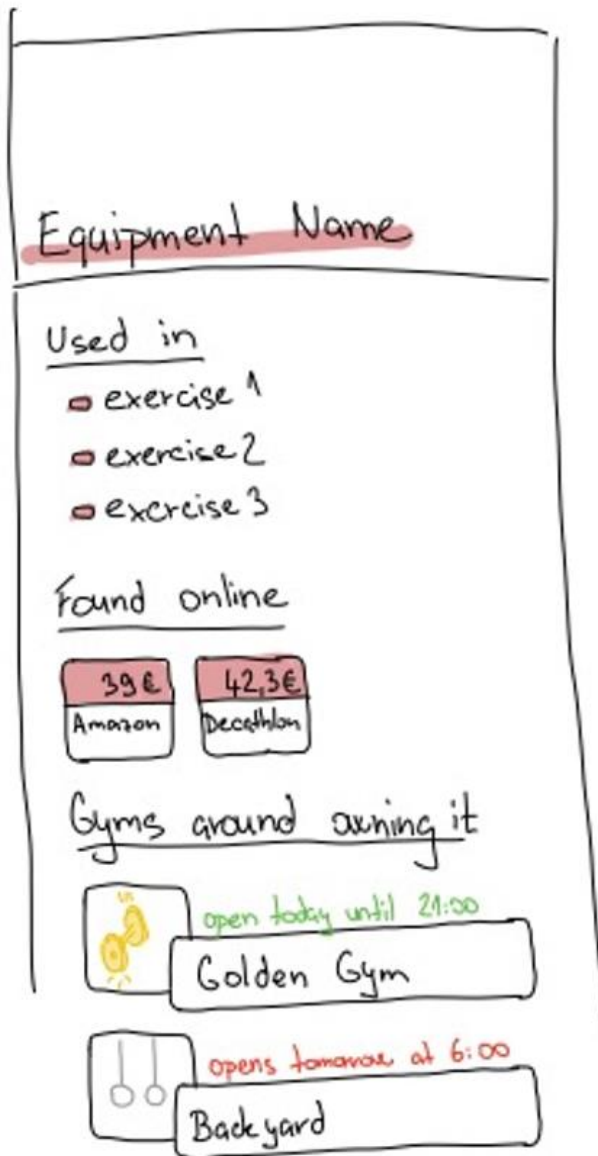 Equipment Name
Used in
exercise 1
exercise 2
exercise 3
Found online
39€ 42,3€
Amazon Decathlon
Gyms around owning it
open today until 21:00
Golden Gym
opens tomorrow at 6:00
Backyard